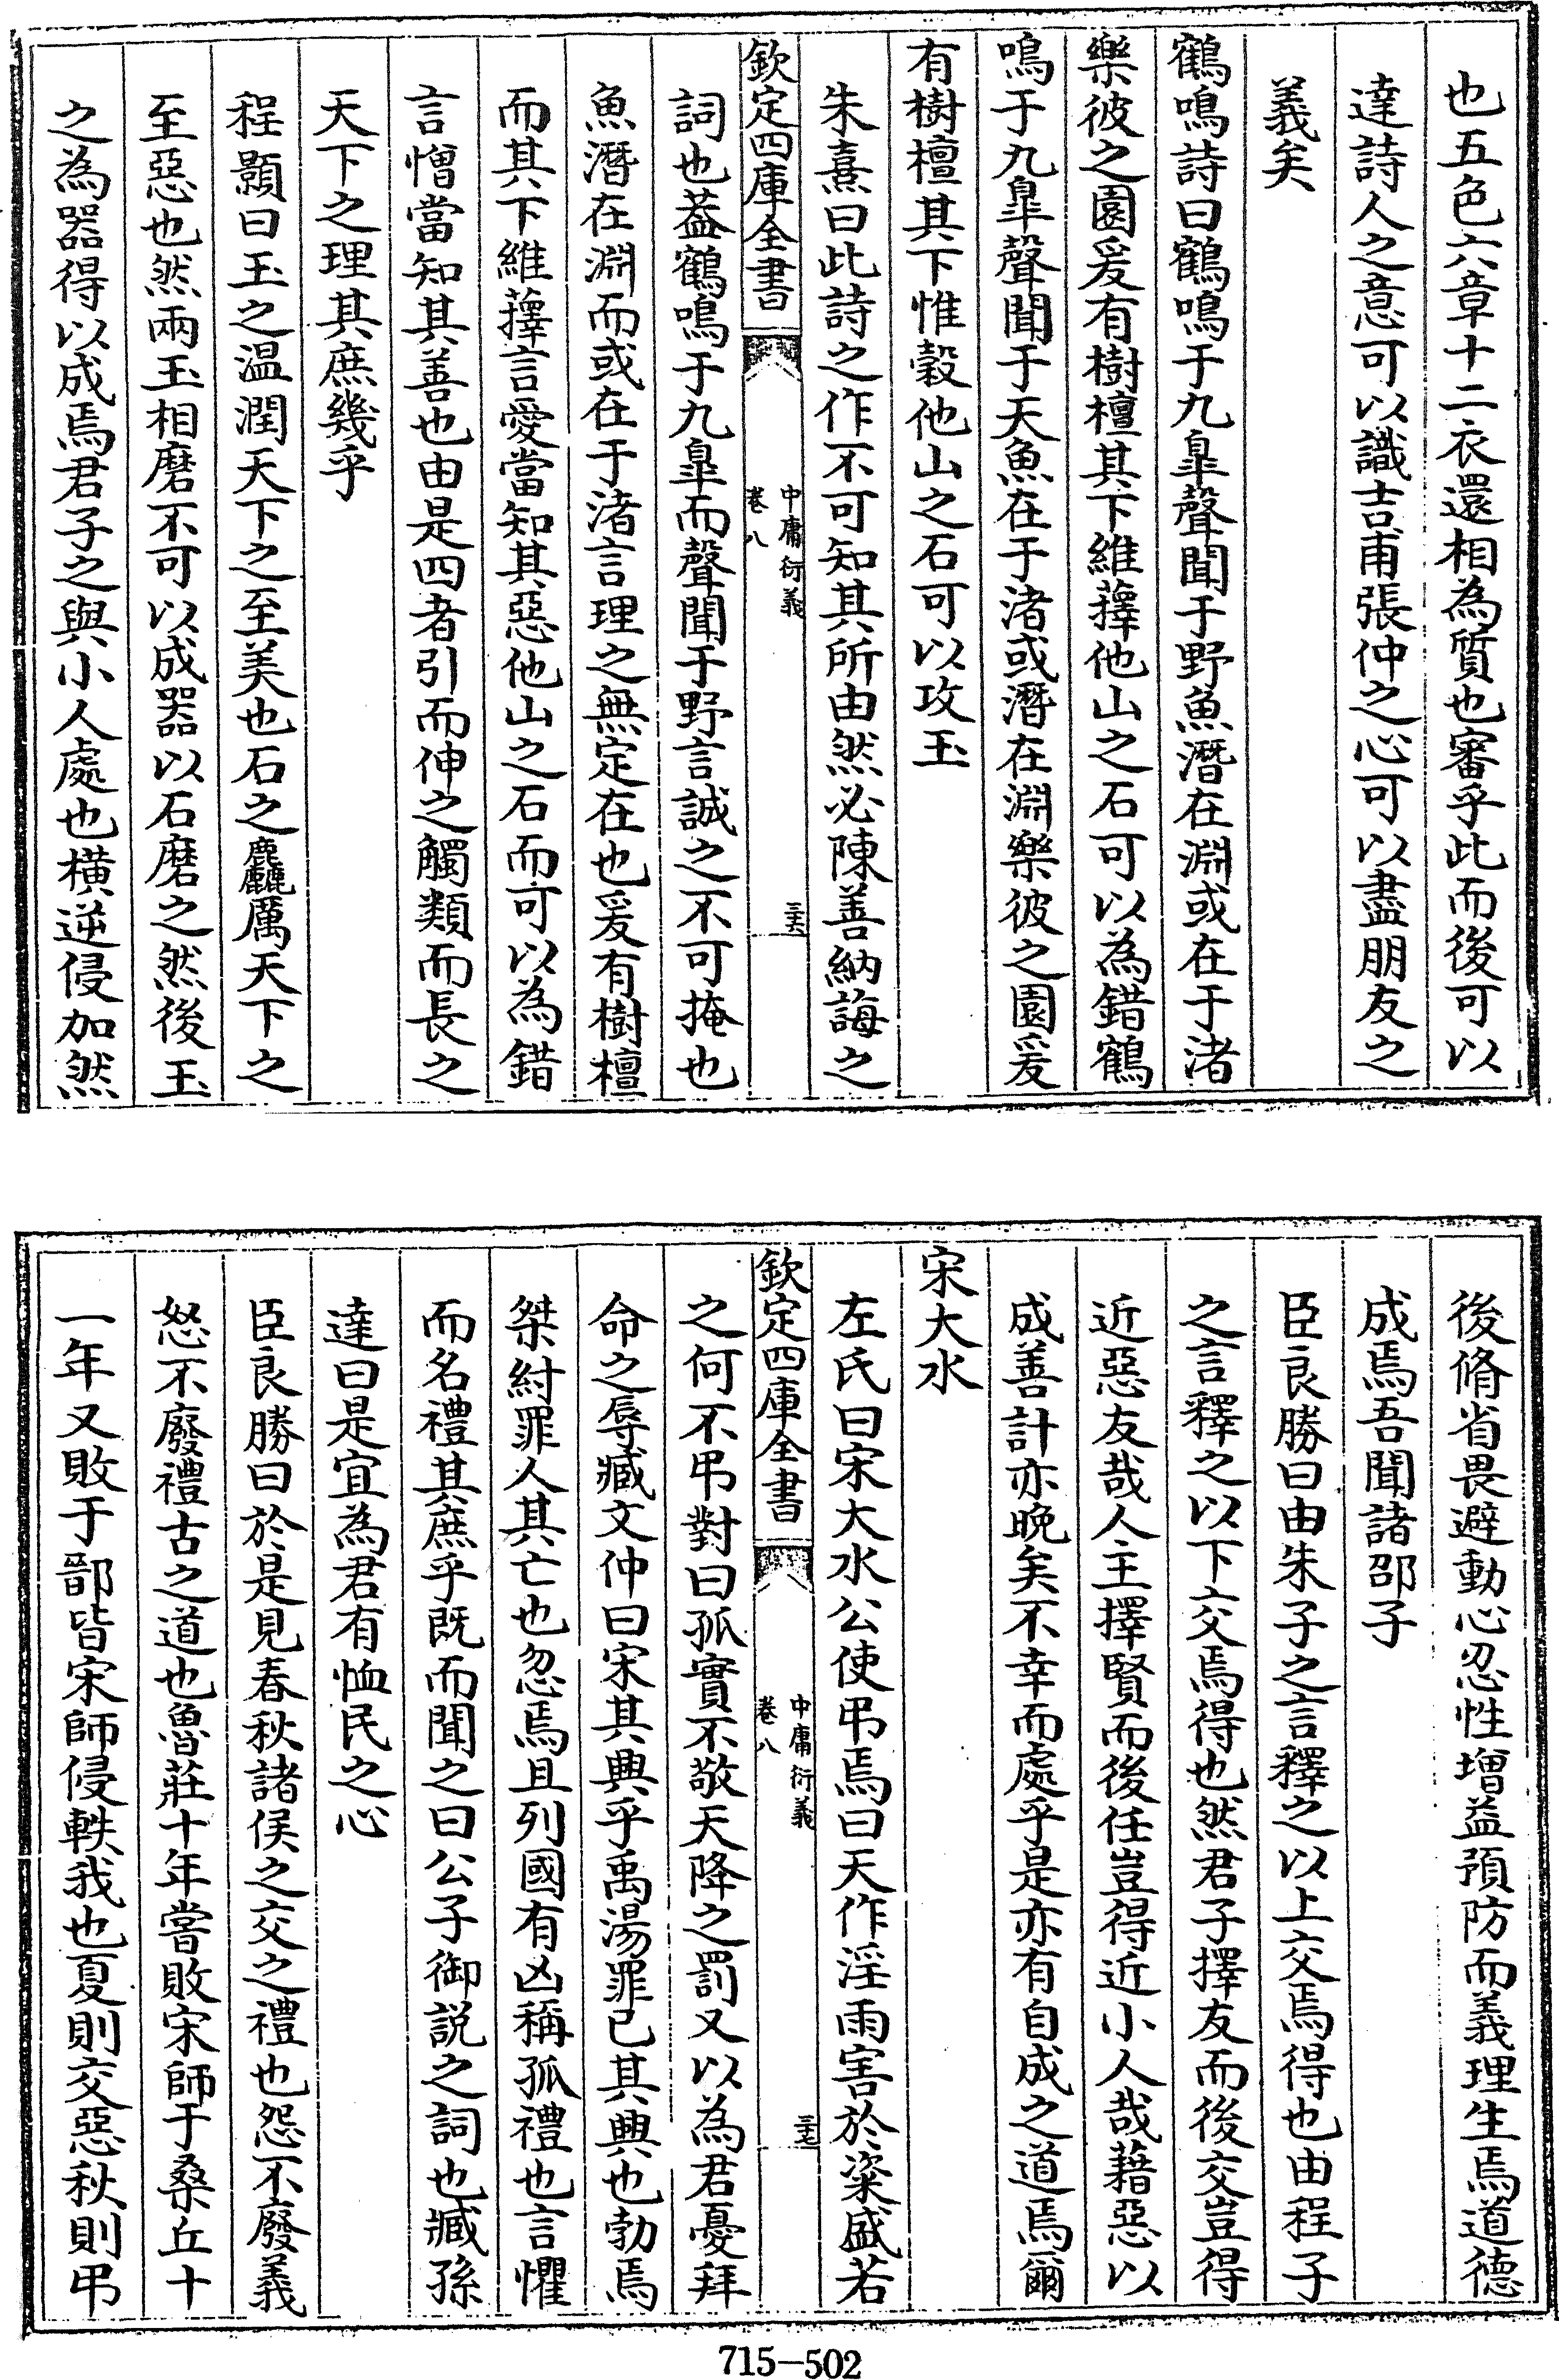 也五色六章十二衣還相為質也審乎此而後可以
達詩人之意可以識吉甫張仲之心可以盡朋友之
義矣
鶴鳴詩曰鶴鳴于九臯聲聞于野魚潛在淵或在于渚
樂彼之園爰有樹檀其下維蘀他山之石可以為錯鶴
鳴于九臯聲聞于天魚在于渚或潛在淵樂彼之園爰
有樹檀其下惟榖他山之石可以攻玉
朱熹曰此詩之作不可知其所由然必陳善納誨之
欽定四庫全書
中庸衍義
卷八
三六
詞也葢鶴鳴于九臯而聲聞于野言誠之不可掩也
魚潛在淵而或在于渚言理之無定在也爰有樹檀
而其下維蘀言愛當知其惡他山之石而可以為錯
言憎當知其善也由是四者引而伸之觸類而長之
天下之理其庶幾乎
程顥曰玉之温潤天下之至美也石之麤厲天下之
至惡也然兩玉相磨不可以成器以石磨之然後玉
之為器得以成焉君子之與小人處也横逆侵加然
後脩省畏避動心忍性增益預防而義理生焉道德
成焉吾聞諸邵子
臣良勝曰由朱子之言釋之以上交焉得也由程子
之言釋之以下交焉得也然君子擇友而後交豈得
近惡友哉人主擇賢而後任豈得近小人哉藉惡以
成善計亦晚矣不幸而處乎是亦有自成之道焉爾
宋大水
左氏曰宋大水公使弔焉曰天作淫雨害於粢盛若
欽定四庫全書
中庸衍義
卷八
三七
之何不弔對曰孤實不敬天降之罰又以為君憂拜
命之辱臧文仲曰宋其興乎禹湯罪已其興也勃焉
桀紂罪人其亡也忽焉且列國有凶稱孤禮也言懼
而名禮其庶乎既而聞之曰公子御説之詞也臧孫
達曰是宜為君有恤民之心
臣良勝曰於是見春秋諸侯之交之禮也怨不廢義
怒不廢禮古之道也魯莊十年嘗敗宋師于桑丘十
一年又敗于鄑皆宋師侵軼我也夏則交惡秋則弔
715-502